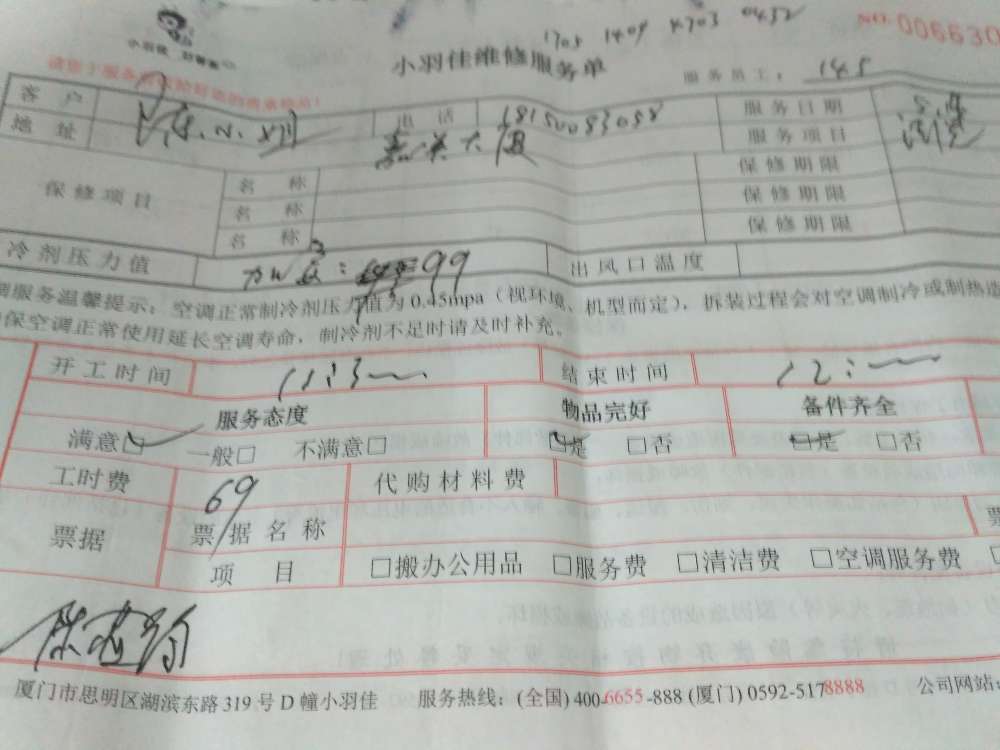 1705 1409 4703 0432
NO. 006630
小羽佳维修服务单
服务员工: 145
客户
电话 18150083058
服务日期
地址
嘉英大厦
服务项目
保修项目
名称
保修期限
名称
保修期限
名称
保修期限
冷剂压力值
99
出风口温度
服务温馨提示: 空调正常制冷剂压力值为 0.45mpa (视环境、机型而定), 拆装过程会对空调制冷或制热造
保空调正常使用延长空调寿命, 制冷剂不足时请及时补充。
开工时间 11:3
结束时间 12:
服务态度
物品完好
备件齐全
满意□ 一般□ 不满意□
□是 □否
□是 □否
工时费 69
代购材料费
票据
票据名称
票
项目
□搬办公用品 □服务费 □清洁费 □空调服务费
厦门市思明区湖滨东路 319 号 D 幢小羽佳 服务热线: (全国) 400-6655-888 (厦门) 0592-5178888 公司网站: